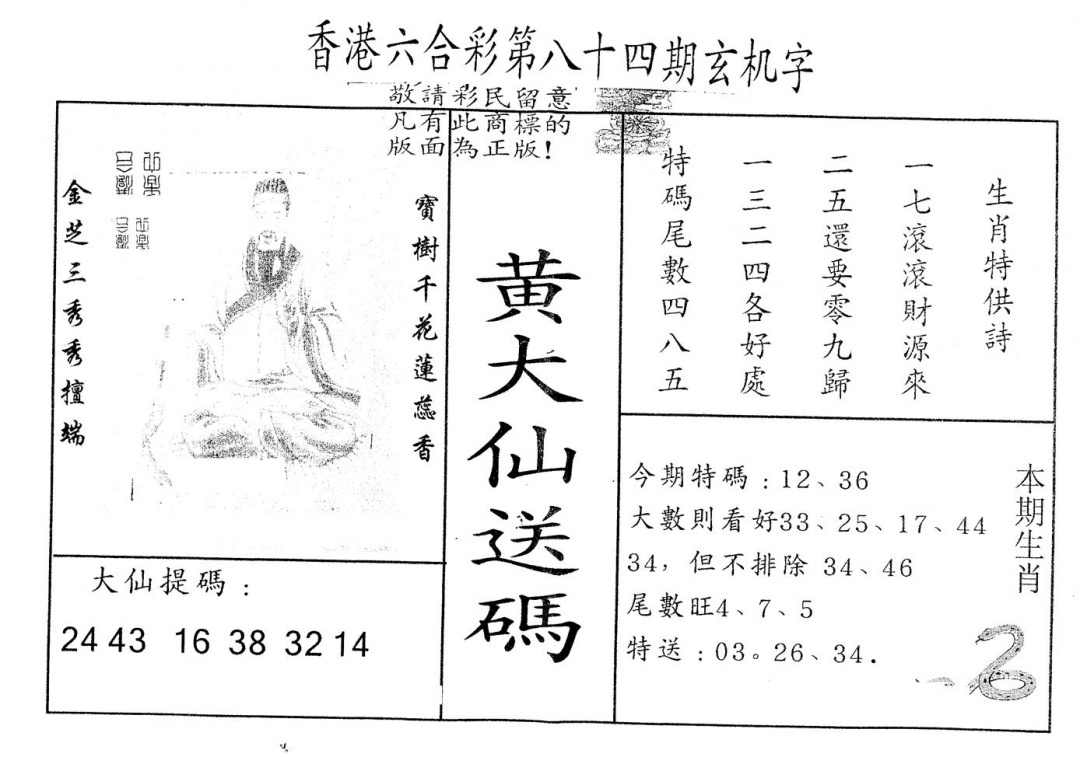 香港六合彩第八十四期玄机字
敬請彩民留意
凡有此商標的
版面為正版!
金芝三秀秀擅端
寶樹千花蓮蕊香
大仙提碼：
24 43 16 38 32 14
黄大仙送碼
生肖特供詩
一七滾滾財源來
二五還要零九歸
一三二四各好處
特碼尾數四八五
今期特碼：12、36
大數則看好33、25、17、44
34，但不排除 34、46
尾數旺4、7、5
特送：03。26、34.
本期生肖